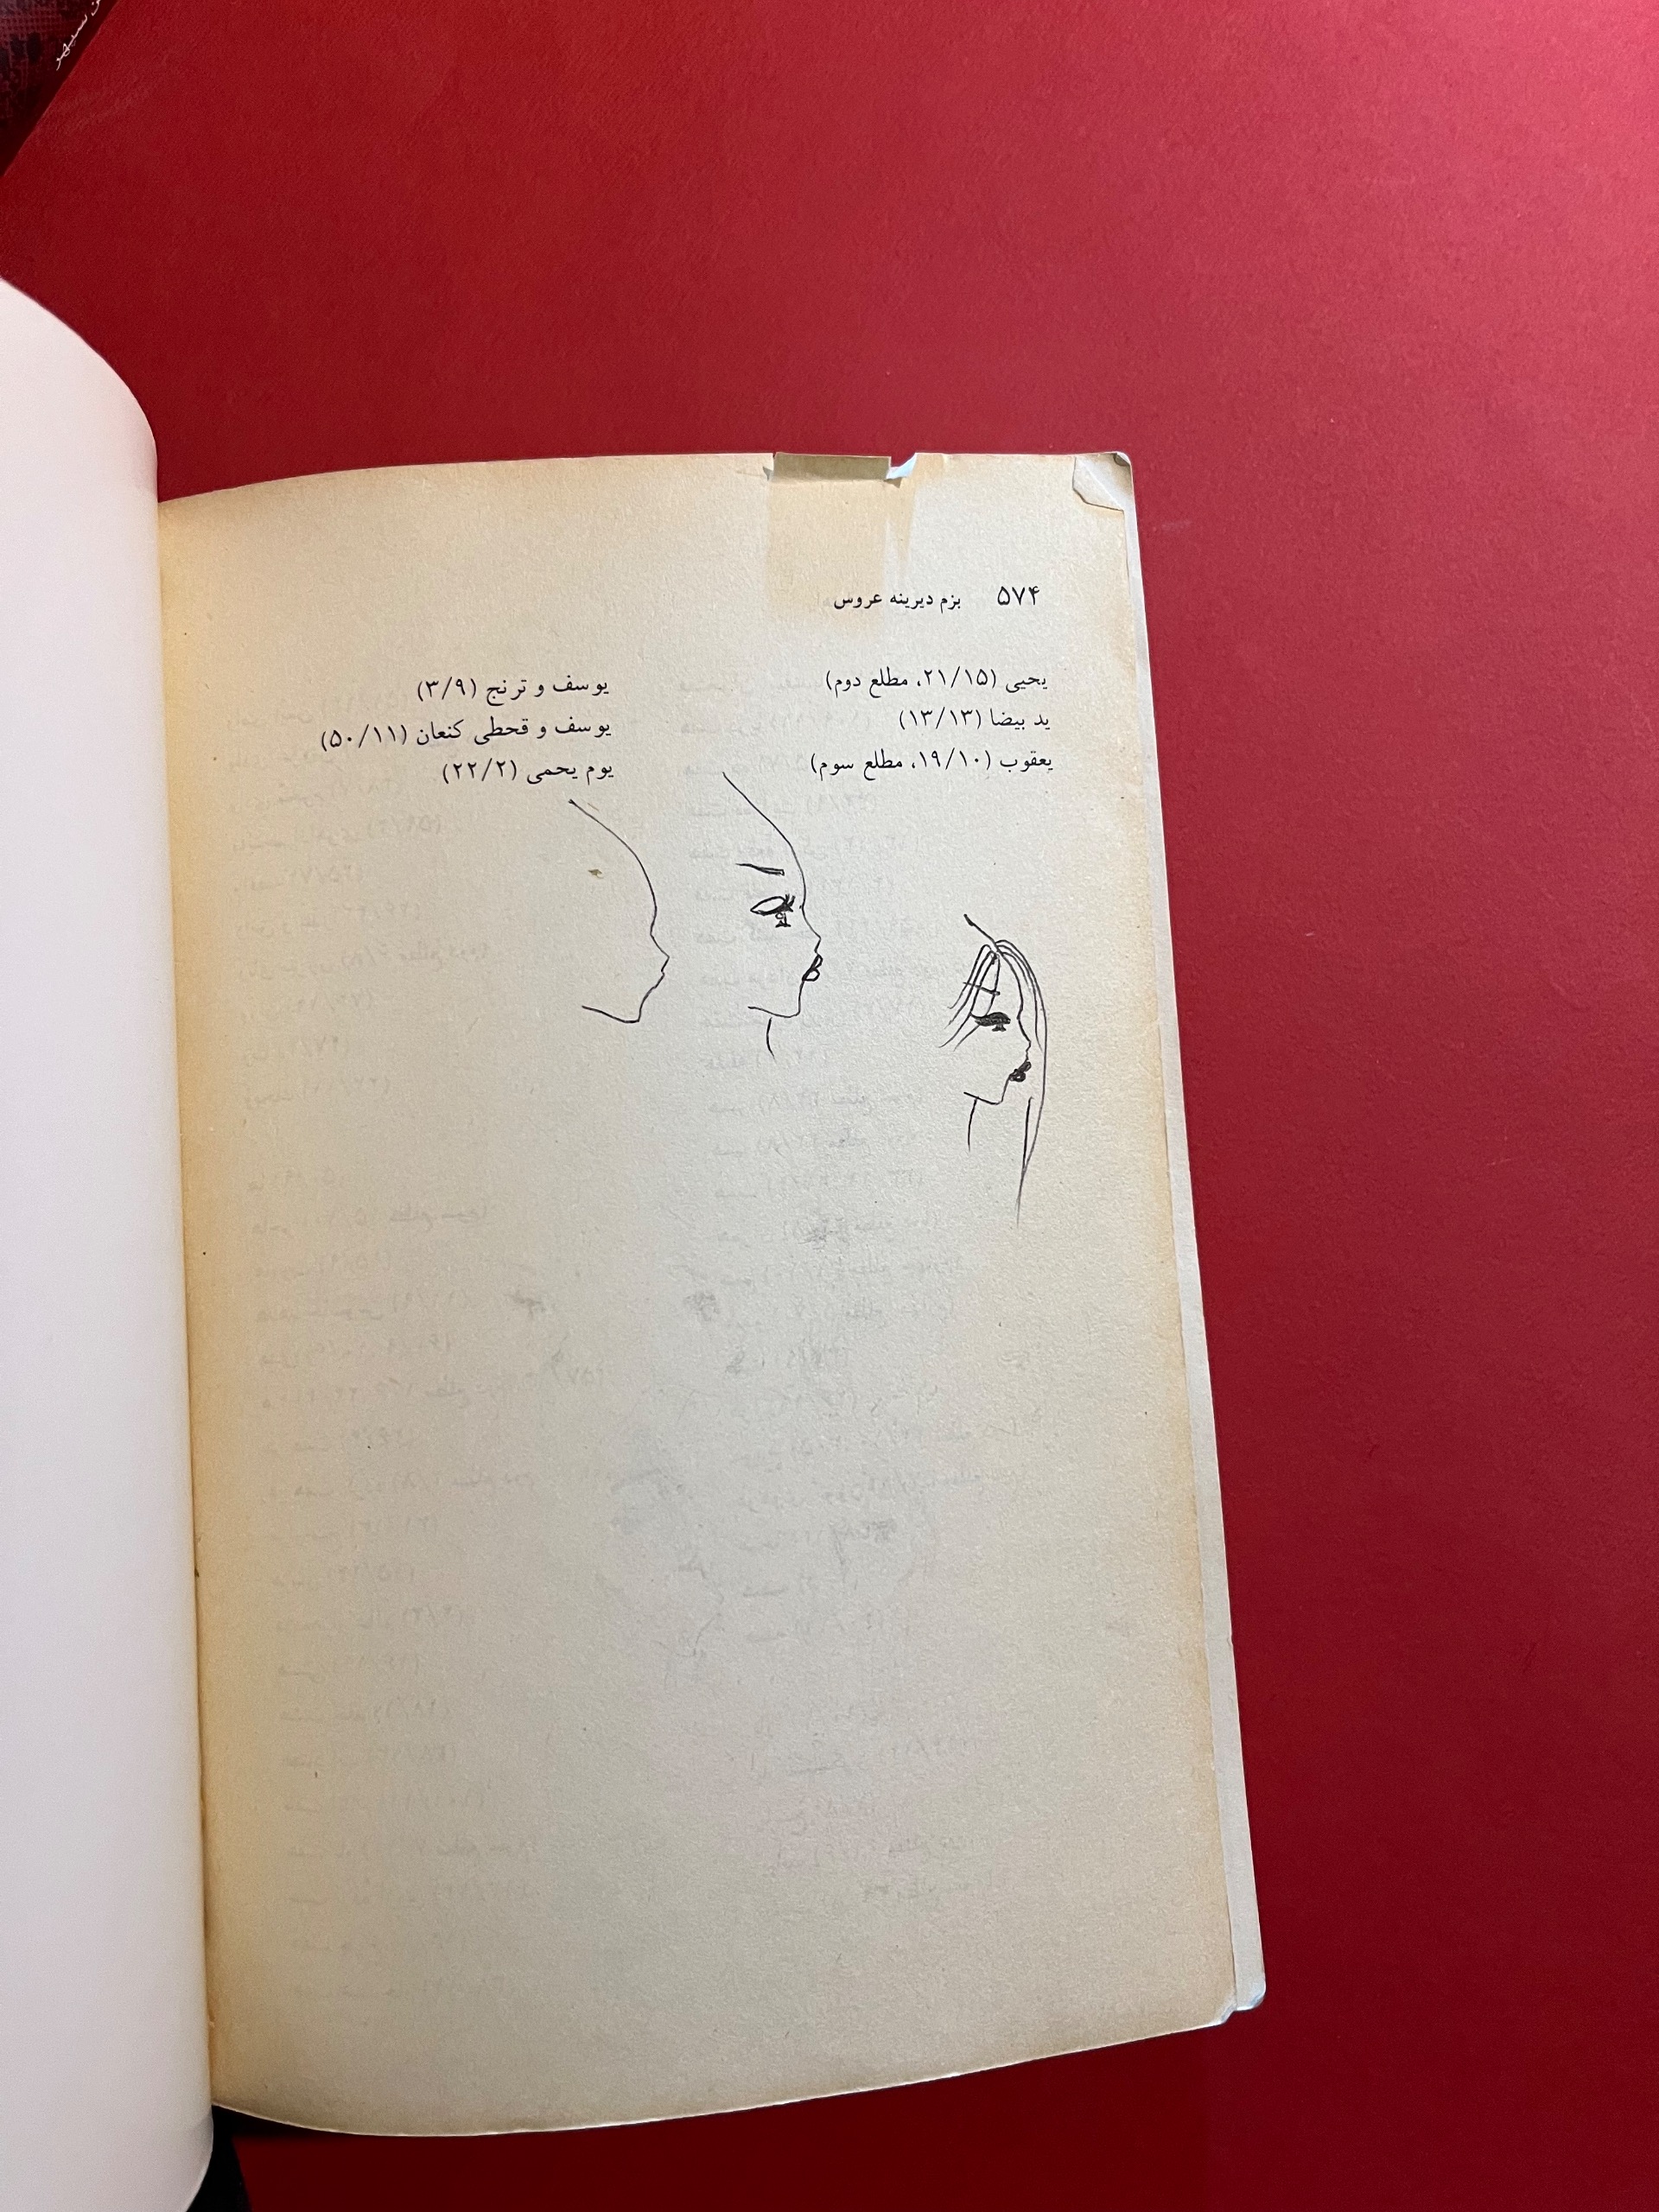 ۵۷۴ بزم دیرینه عروس
یحیی (۲۱/۱۵، مطلع دوم)
ید بیضا (۱۳/۱۳)
یعقوب (۱۹/۱۰، مطلع سوم)
یوسف و ترنج (۳/۹)
یوسف و قحطی کنعان (۵۰/۱۱)
یوم یحمی (۲۲/۲)